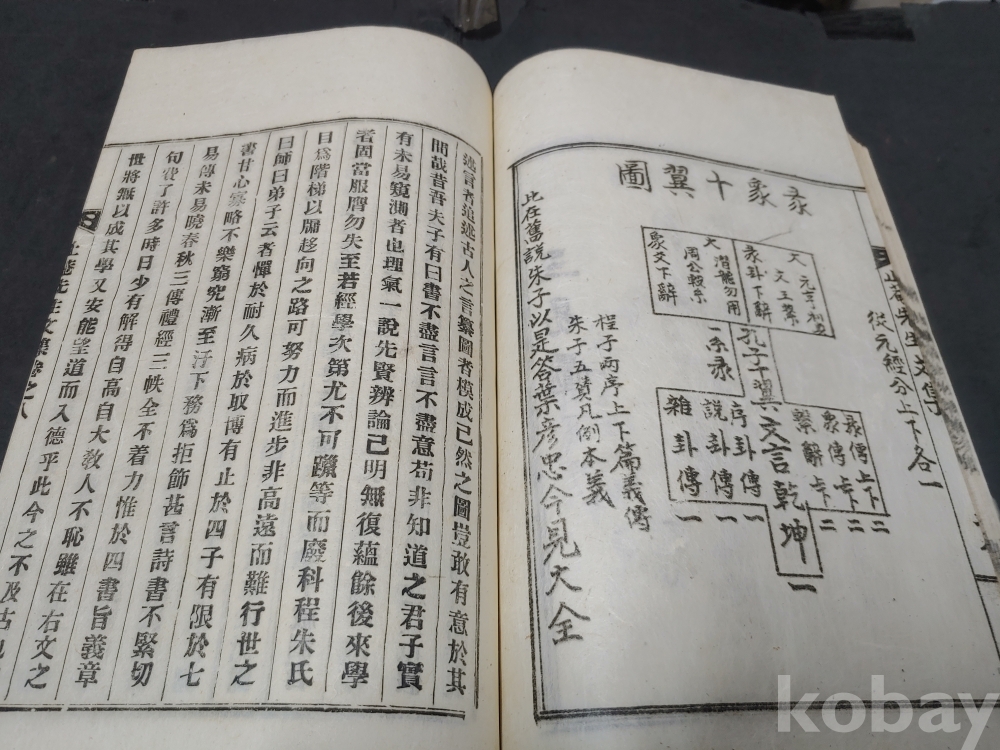 彖象十翼圖
大 元亨利貞
文王繫
彖卦下辭
大 潛龍勿用
周公繫爻
象爻下辭
孔子十翼
一系彖
文言乾坤一
彖傳上下二
象傳上下二
繫辭上下二
序卦傳一
說卦傳一
雜卦傳一
從元經分上下各一
程子兩序上下篇義傳
朱子五贊凡例本義
此在舊說朱子以是答葉彦忠今見大全
先生文集
述言者追述古人之言纂圖者模成已然之圖豈敢有意於其
間哉昔吾夫子有曰書不盡言言不盡意苟非知道之君子實
有未易窺測者也理氣一說先賢辨論已明無復蘊餘後來學
者固當服膺勿失至若經學次第尤不可躐等而廢科程朱氏
曰爲階梯以牖趍向之路可努力而進步非高遠而難行世之
曰師曰弟子云者憚於耐久病於取博有止於四子有限於七
書甘心寡略不樂窮究漸至汙下務爲拒節甚言詩書不緊切
易傳未易曉春秋三傳禮經三帙全不着力惟於四書旨義章
句費了許多時日少有解得自高自大敎人不恥雖在右文之
世將無以成其學又安能望道而入德乎此今之不及古也
先生文集卷之八
kobay